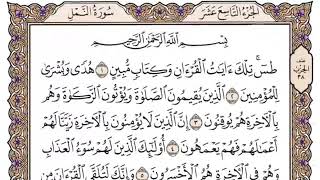 الجزء التاسع عشر
سورة النمل
بِسْمِ اللَّهِ الرَّحْمَٰنِ الرَّحِيمِ
طسٓ ۚ تِلْكَ ءَايَٰتُ الْقُرْءَانِ وَكِتَابٍ مُّبِينٍ ١ هُدًى وَبُشْرَىٰ
لِلْمُؤْمِنِينَ ٢ الَّذِينَ يُقِيمُونَ الصَّلَوٰةَ وَيُؤْتُونَ الزَّكَوٰةَ وَهُم
بِالْءَاخِرَةِ هُمْ يُوقِنُونَ ٣ إِنَّ الَّذِينَ لَا يُؤْمِنُونَ بِالْءَاخِرَةِ زَيَّنَّا لَهُمْ
أَعْمَٰلَهُمْ فَهُمْ يَعْمَهُونَ ٤ أُولَٰئِكَ الَّذِينَ لَهُمْ سُوٓءُ الْعَذَابِ
وَهُمْ فِي الْءَاخِرَةِ هُمُ الْأَخْسَرُونَ ٥ وَإِنَّكَ لَتُلَقَّى الْقُرْءَانَ مِن
الحزب
٣٨